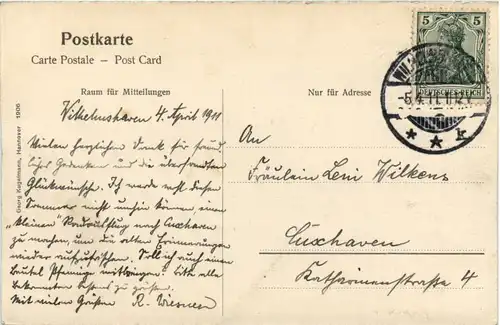 Postkarte
Carte Postale — Post Card
Raum für Mitteilungen
Nur für Adresse
Georg Kugelmann, Hannover 1906
5
5
DEUTSCHES REICH
-5.4.11.11-12V.
* * k
Wilhelmshaven 4. April 1911
Vielen herzlichen Dank für freund-
liches Gedenken und die übersandten
Glückwünsche. Ich werde erst diesen
Sommer nicht umhin können einen
"kleinen" Radausflug nach Cuxhaven
zu machen, um die alten Erinnerungen
wieder aufzufrischen. Soll ich auch einen
Beutel Pfennige mitbringen? Bitte alle
Bekannten bestens zu grüßen.
Mit vielen Grüßen R. Wiesner
An
Fräulein Leni Wilkens
Cuxhaven
Katharinenstraße 4